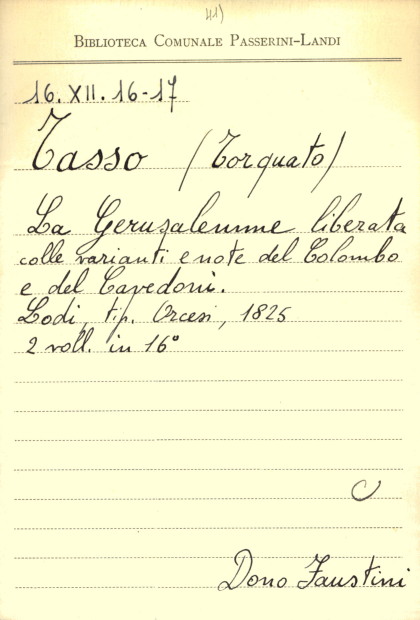 41)
BIBLIOTECA COMUNALE PASSERINI-LANDI
16. XII. 16-17
Tasso (Torquato)
La Gerusalemme liberata
colle varianti e note del Colombo
e del Cavedoni.
Lodi, tip. Orcesi, 1825
2 voll. in 16°
C
Dono Faustini